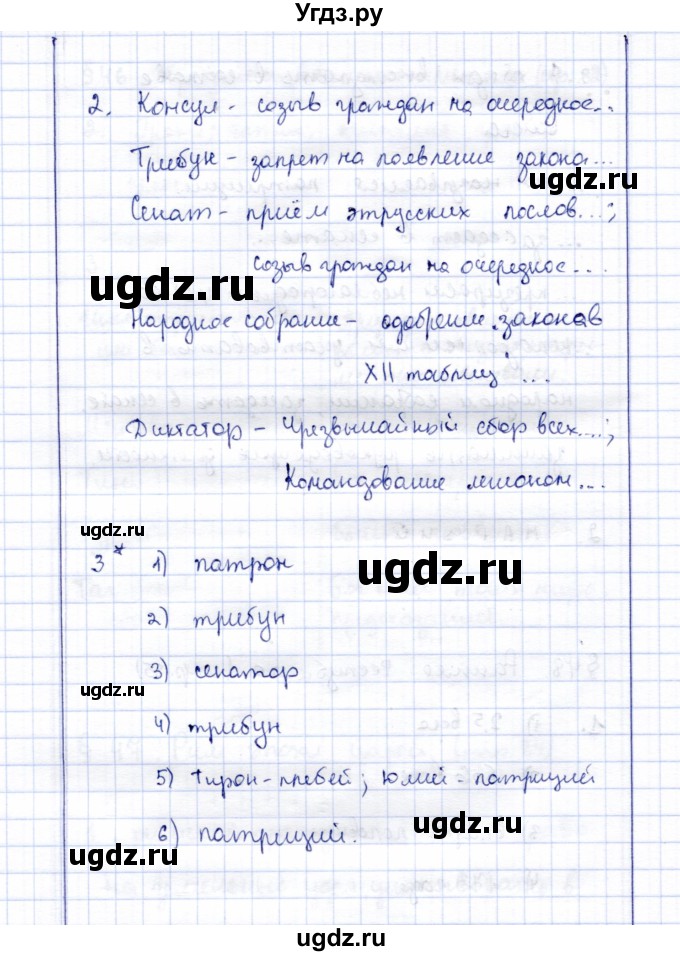 Угдз.ру
2. Консул - созыв граждан на очередное...
Трибун - запрет на появление закона...
ugdz.ru
Сенат - приём этрусских послов...;
созыв граждан на очередное...
ugdz.ru
Народное собрание - одобрение законов
XII таблиц...
Диктатор - Чрезвычайный сбор всех...;
Командование легионом...
ugdz.ru
3* 1) патрон
ugdz.ru
2) трибун
3) сенатор
ugdz.ru
4) трибун
5) Тирон - плебей; Юлий - патриций
ugdz.ru
6) патриций.
ugdz.ru
ugdz.ru